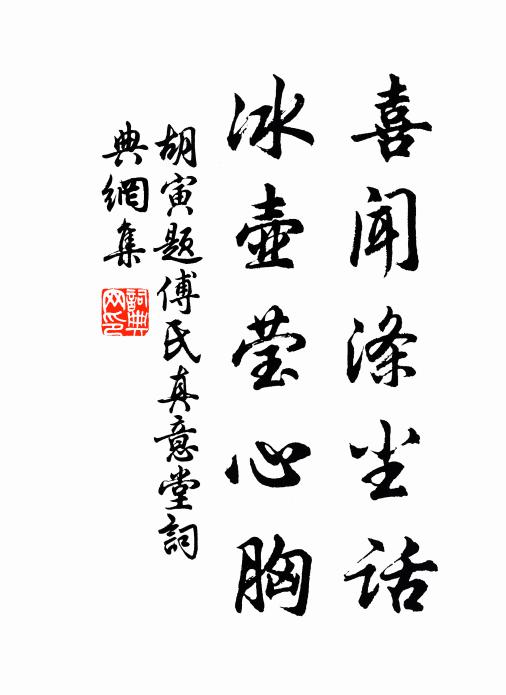 喜闻涤尘话
冰壶莹心胸
胡寅题傅氏真意堂词
典網集
詞典網印